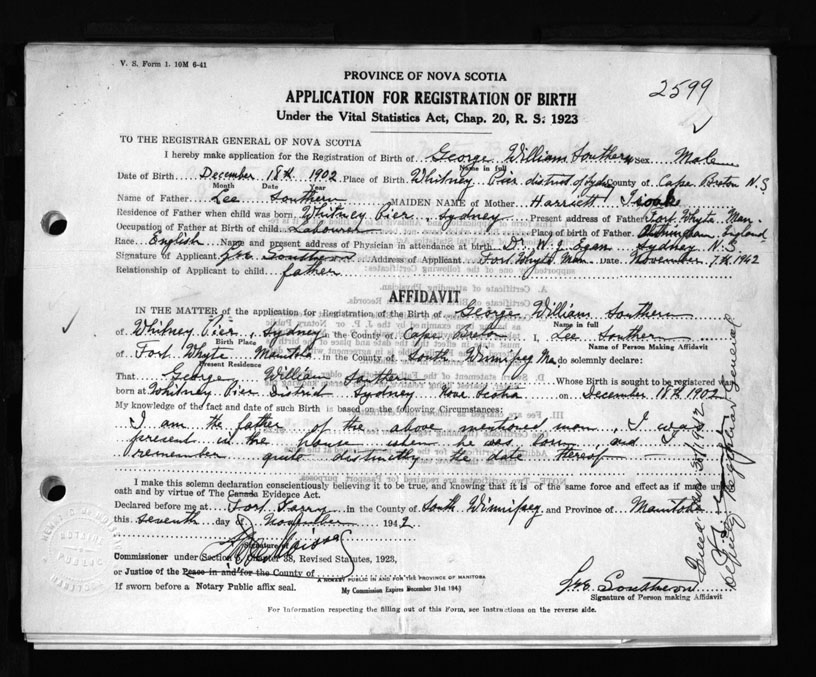 V. S. Form 1. 10M 6-41
PROVINCE OF NOVA SCOTIA
2599
APPLICATION FOR REGISTRATION OF BIRTH
Under the Vital Statistics Act, Chap. 20, R. S. 1923
TO THE REGISTRAR GENERAL OF NOVA SCOTIA
I hereby make application for the Registration of Birth of George William Southern Sex Male
Name in full
Date of Birth December 18th 1902 Place of Birth Whitney Pier district of Sydney County of Cape Breton N.S.
Month Date Year
Name of Father Lee Southern MAIDEN NAME of Mother Harriett
Residence of Father when child was born Whitney Pier, Sydney Present address of Father Fort Whyte Man.
Occupation of Father at Birth of child Labourer Place of birth of Father England
Race English Name and present address of Physician in attendance at birth Dr. W. J. Egan Sydney N.S.
Signature of Applicant Lee Southern Address of Applicant Fort Whyte Man. Date November 7th 1942
Relationship of Applicant to child father
AFFIDAVIT
IN THE MATTER of the application for Registration of the Birth of George William Southern
Name in full
of Whitney Pier, Sydney in the County of Cape Breton I, Lee Southern
Birth Place Name of Person Making Affidavit
of Fort Whyte Manitoba in the County of South Winnipeg Ma do solemnly declare:
Present Residence
That George William Southern Whose Birth is sought to be registered was
born at Whitney Pier District Sydney Nova Scotia on December 18th 1902
My knowledge of the fact and date of such Birth is based on the following Circumstances:
I am the father of the above mentioned man, I was
present in the house when he was born, and I
remember quite distinctly the date thereof
I make this solemn declaration conscientiously believing it to be true, and knowing that it is of the same force and effect as if made under
oath and by virtue of The Canada Evidence Act.
Declared before me at Fort Garry in the County of South Winnipeg and Province of Manitoba
this seventh day of November 1942
Signature of
Commissioner under (Section 6, Chapter 38, Revised Statutes, 1923,
or Justice of the Peace in and for the County of
A NOTARY PUBLIC IN AND FOR THE PROVINCE OF MANITOBA
If sworn before a Notary Public affix seal.
My Commission Expires December 31st 1943
Lee Southern
Signature of Person making Affidavit
Deputy Registrar General
For Information respecting the filling out of this Form, see Instructions on the reverse side.